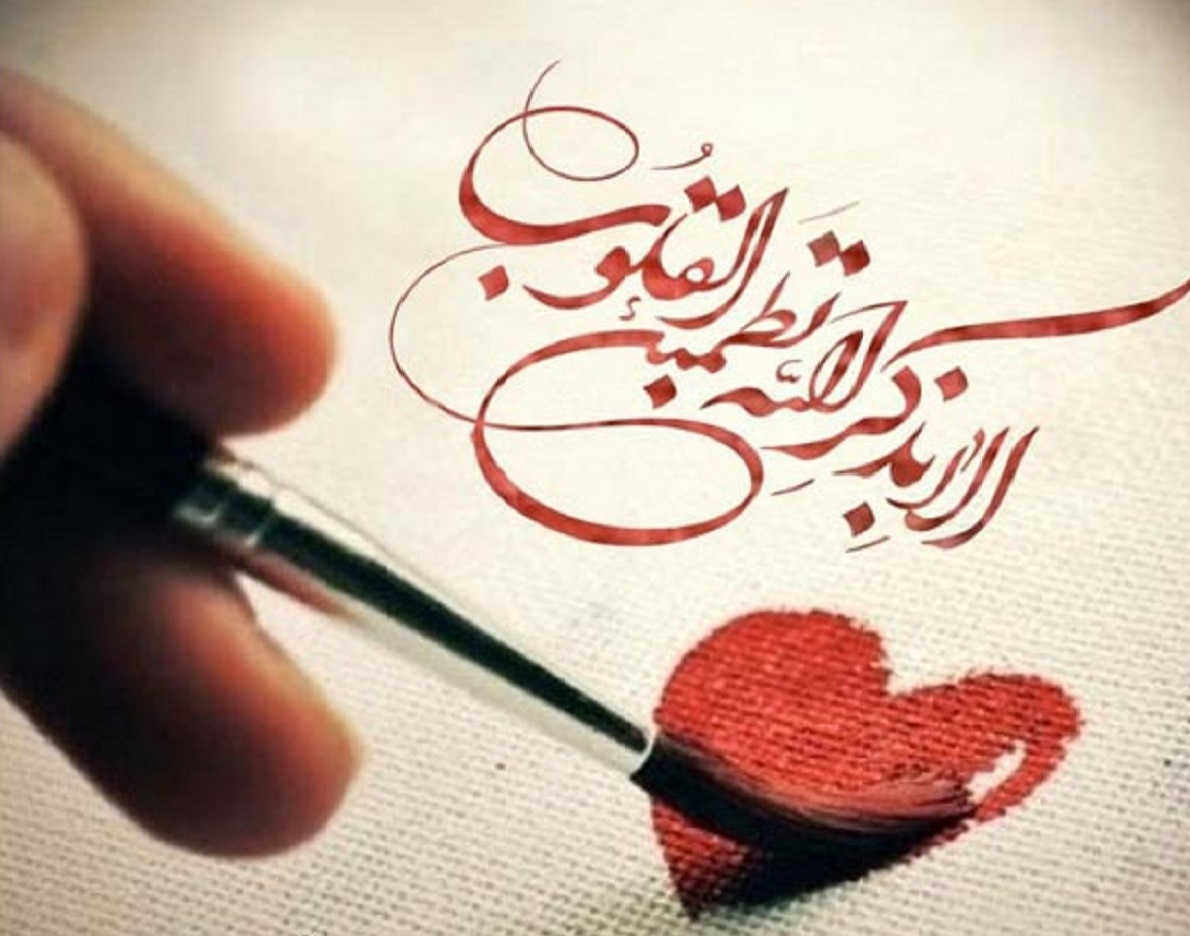 الا بِذکر الله تطمئن القلوبُ